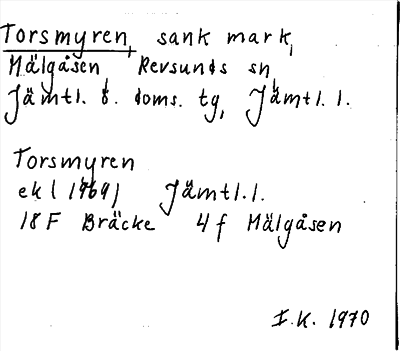 Torsmyren, sank mark,
Mälgåsen, Revsunds sn,
Jämtl. ö. doms. tg, Jämtl. l.
Torsmyren
ekl (1969) Jämtl. l.
18 F Bräcke 4 f Mälgåsen
I.K. 1970